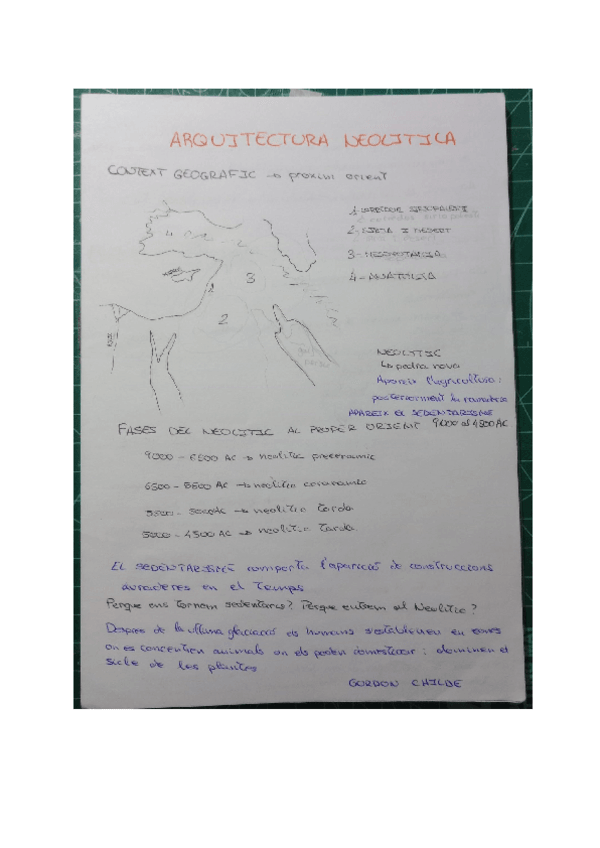 ARQUITECTURA NEOLITICA
CONTEXT GEOGRAFIC → proxim orient
1- CORREDOR
2- I DESERT
3- MESOPOTAMIA
4- ANATOLIA
4
3
1
2
NEOLITIC
↳ pedra nova
Apareix l'agricultura i
posteriorment la ramaderia
APAREIX EL SEDENTARISME
FASES DEL NEOLITIC AL PROPER ORIENT 9000 al 4500 AC
9000 - 6500 AC → neolitic preceramic
6500 - 5500 AC → neolitic
5500 - 5000 AC → neolitic tarda
5000 - 4500 AC → neolitic tarda
EL SEDENTARISME comporta l'aparicio de construccions
duraderes en el temps
Perque ens tornam sedentaris? Perque entram al Neolitic?
Despres de la ultima glaciacio els humans s'estableixen en zones
on es concentren animals on els poden domesticar i dominen el
sicle de les plantes
GORDON CHILDE